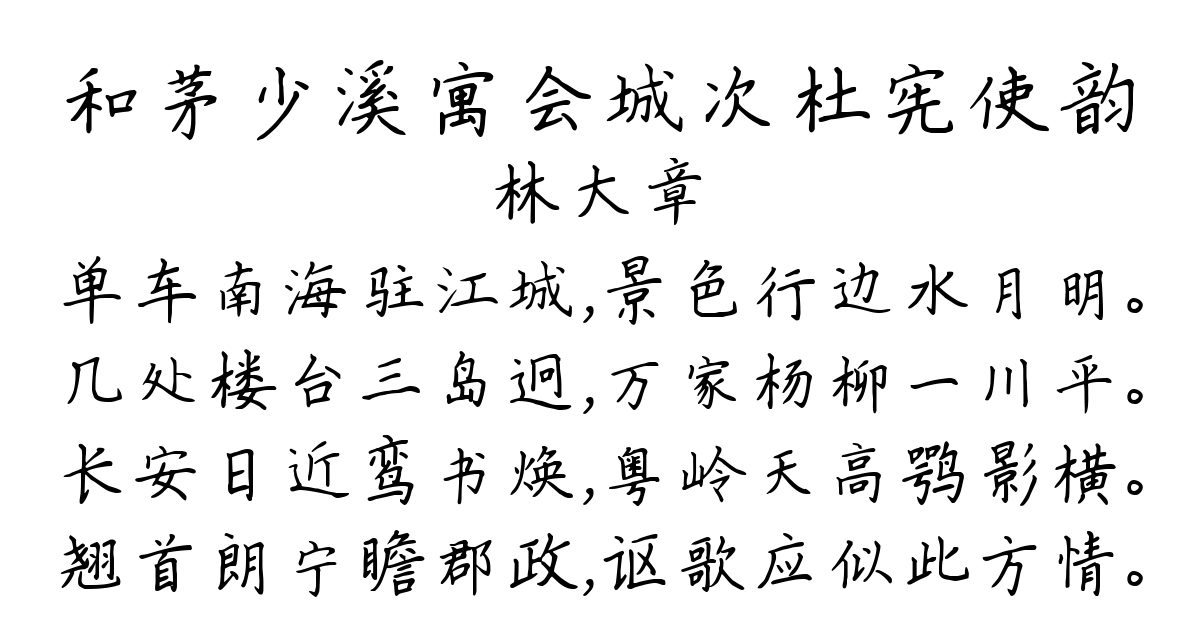 和茅少溪寓会城次杜宪使韵
林大章
单车南海驻江城,景色行边水月明。
几处楼台三岛迥,万家杨柳一川平。
长安日近鸾书焕,粤岭天高鹗影横。
翘首朗宁瞻郡政,讴歌应似此方情。